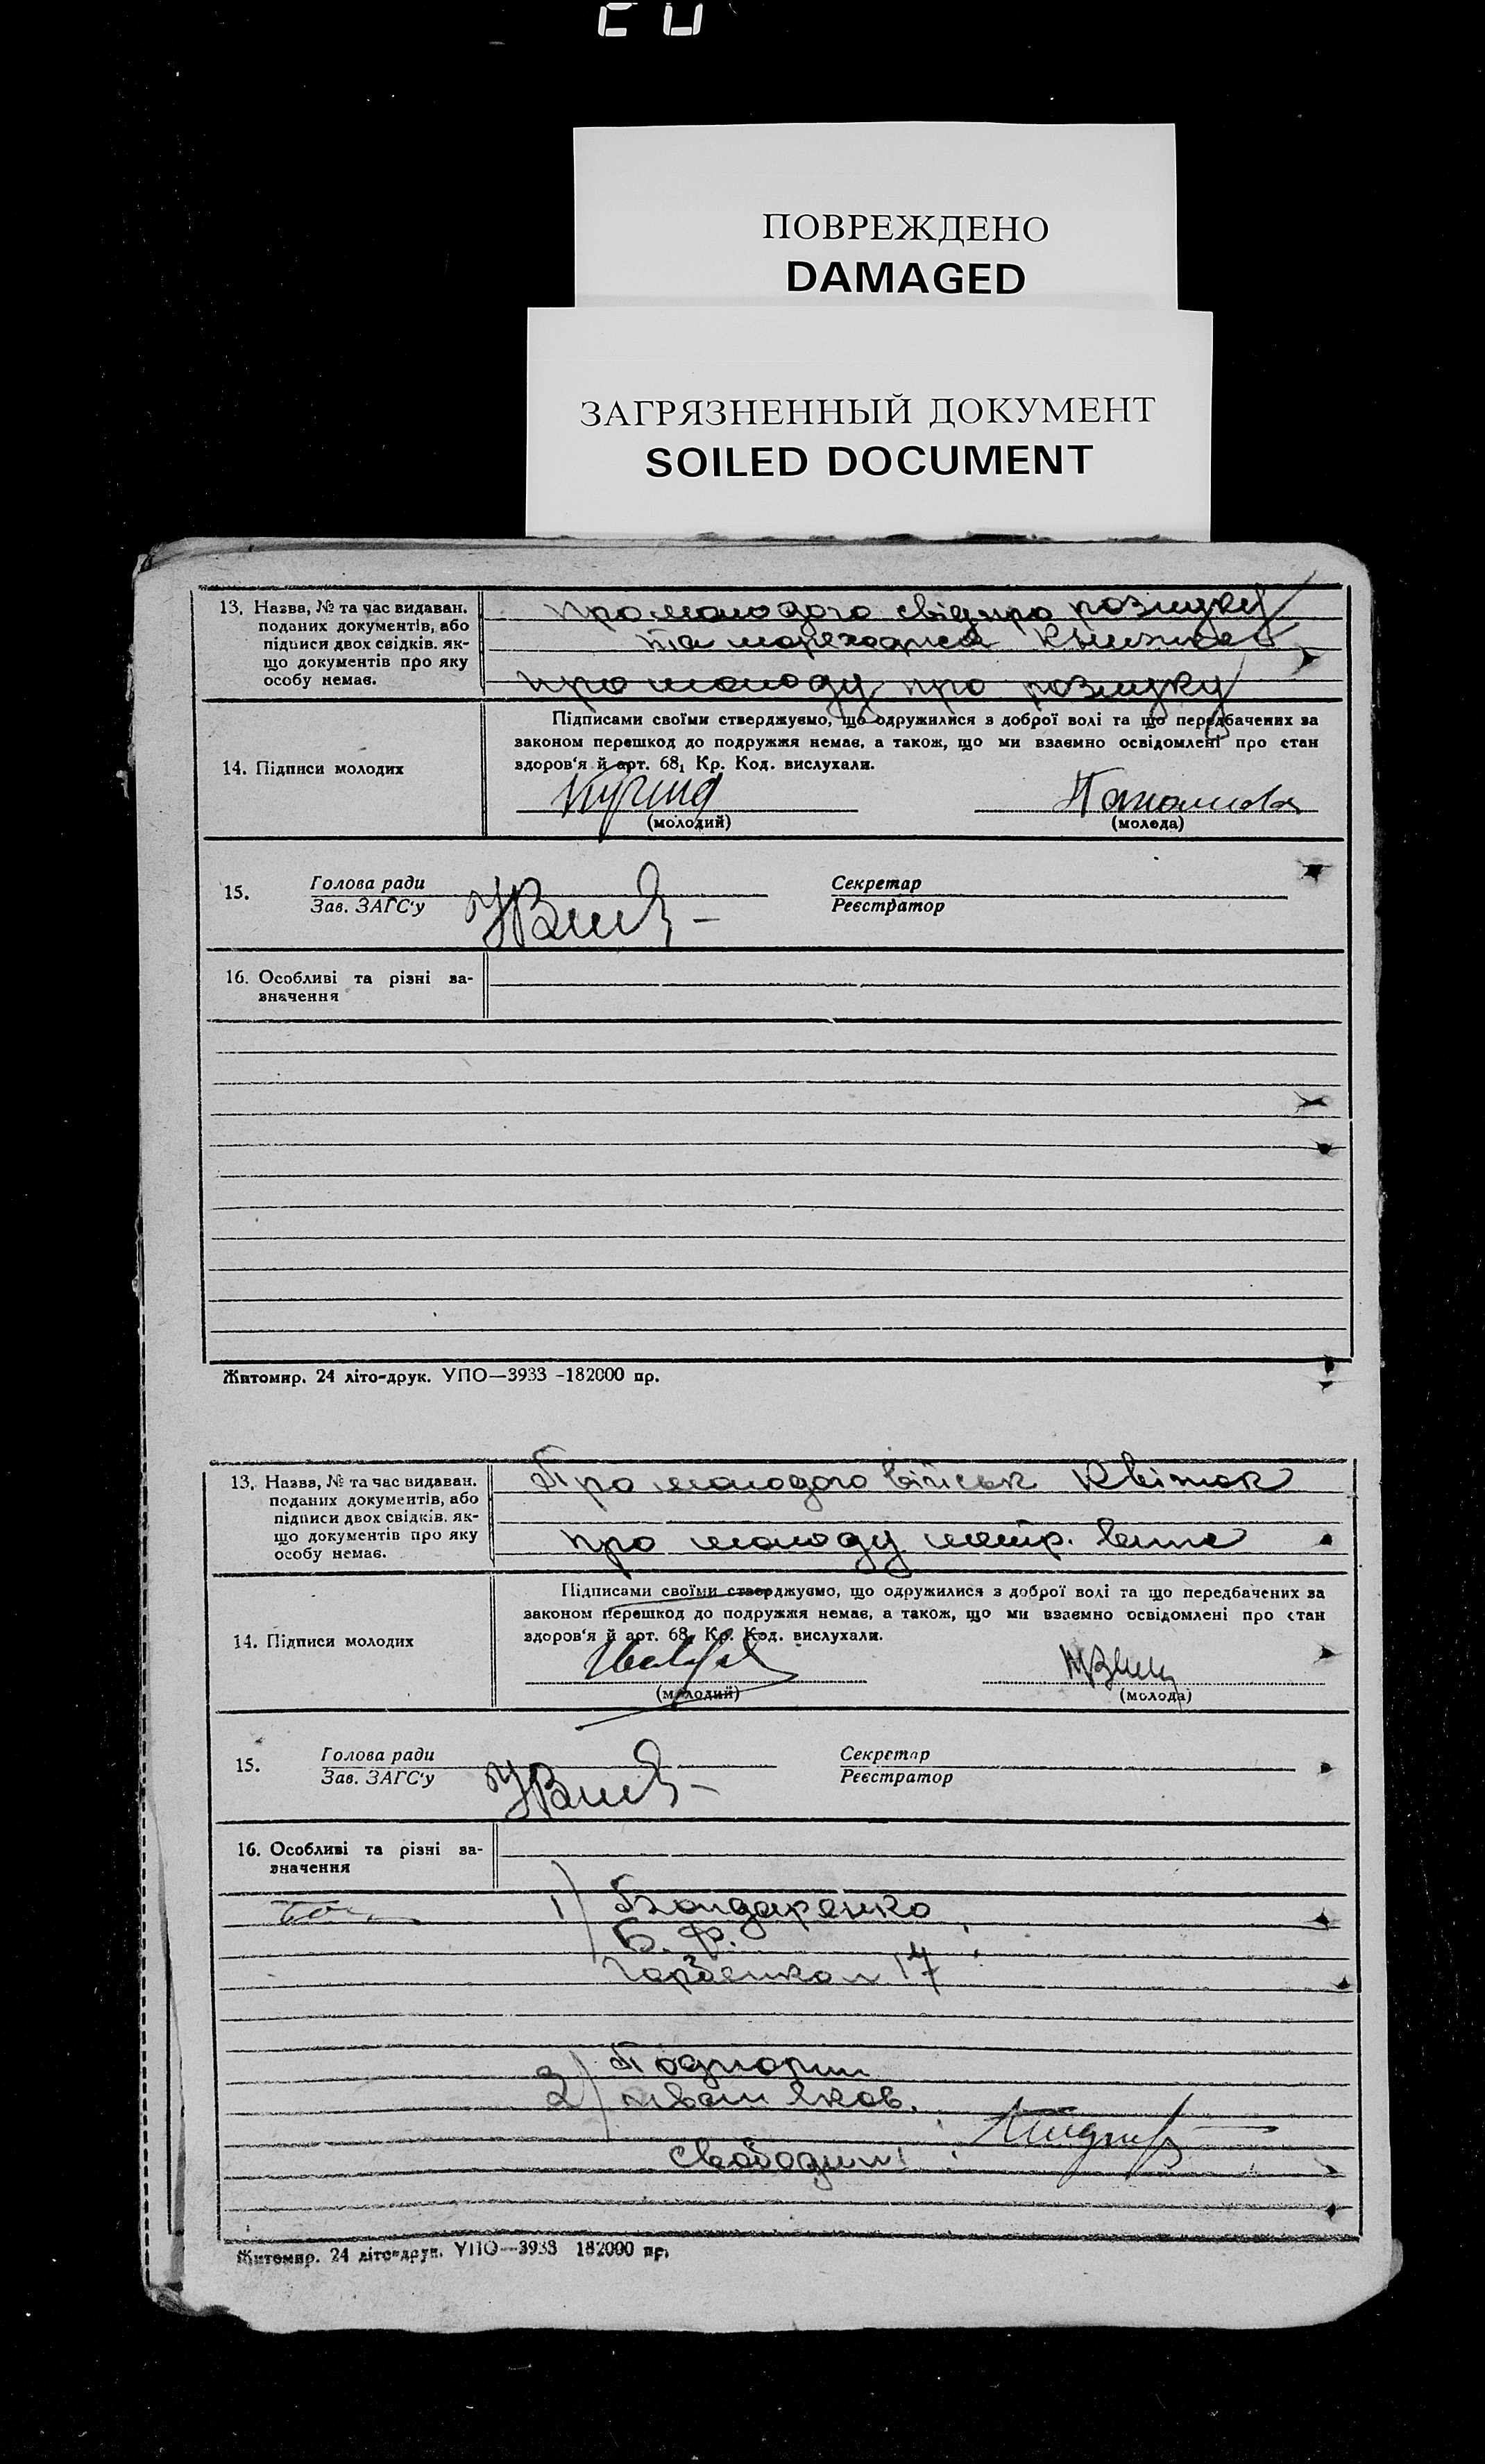 ПОВРЕЖДЕНО
DAMAGED
ЗАГРЯЗНЕННЫЙ ДОКУМЕНТ
SOILED DOCUMENT
13. Назва, № та час видаван.
поданих документів, або
підписи двох свідків, як-
що документів про яку
особу немає.
про молодого свід про розлуку
та мореходная книжка
про молоду про розлуку
Підписами своїми стверджуємо, що одружилися з доброї волі та що передбачених за
законом перешкод до подружжя немає, а також, що ми взаємно освідомлені про стан
здоров'я й арт. 68₁ Кр. Код. вислухали.
14. Підписи молодих
(молодий) (молода)
15. Голова ради Секретар
Зав. ЗАГС'у Реєстратор
16. Особливі та різні за-
значення
Житомир. 24 літо-друк. УПО—3933 -182000 пр.
13. Назва, № та час видаван.
поданих документів, або
підписи двох свідків, як-
що документів про яку
особу немає.
Про молодого військ квіток
про молоду метр. випис
Підписами своїми стверджуємо, що одружилися з доброї волі та що передбачених за
законом перешкод до подружжя немає, а також, що ми взаємно освідомлені про стан
здоров'я й арт. 68₁ Кр. Код. вислухали.
14. Підписи молодих
(молодий) (молода)
15. Голова ради Секретар
Зав. ЗАГС'у Реєстратор
16. Особливі та різні за-
значення
1) Бондаренко
Б. Ф.
17
2)
Яков.
Житомир. 24 літо-друк. УПО—3933 182000 пр.